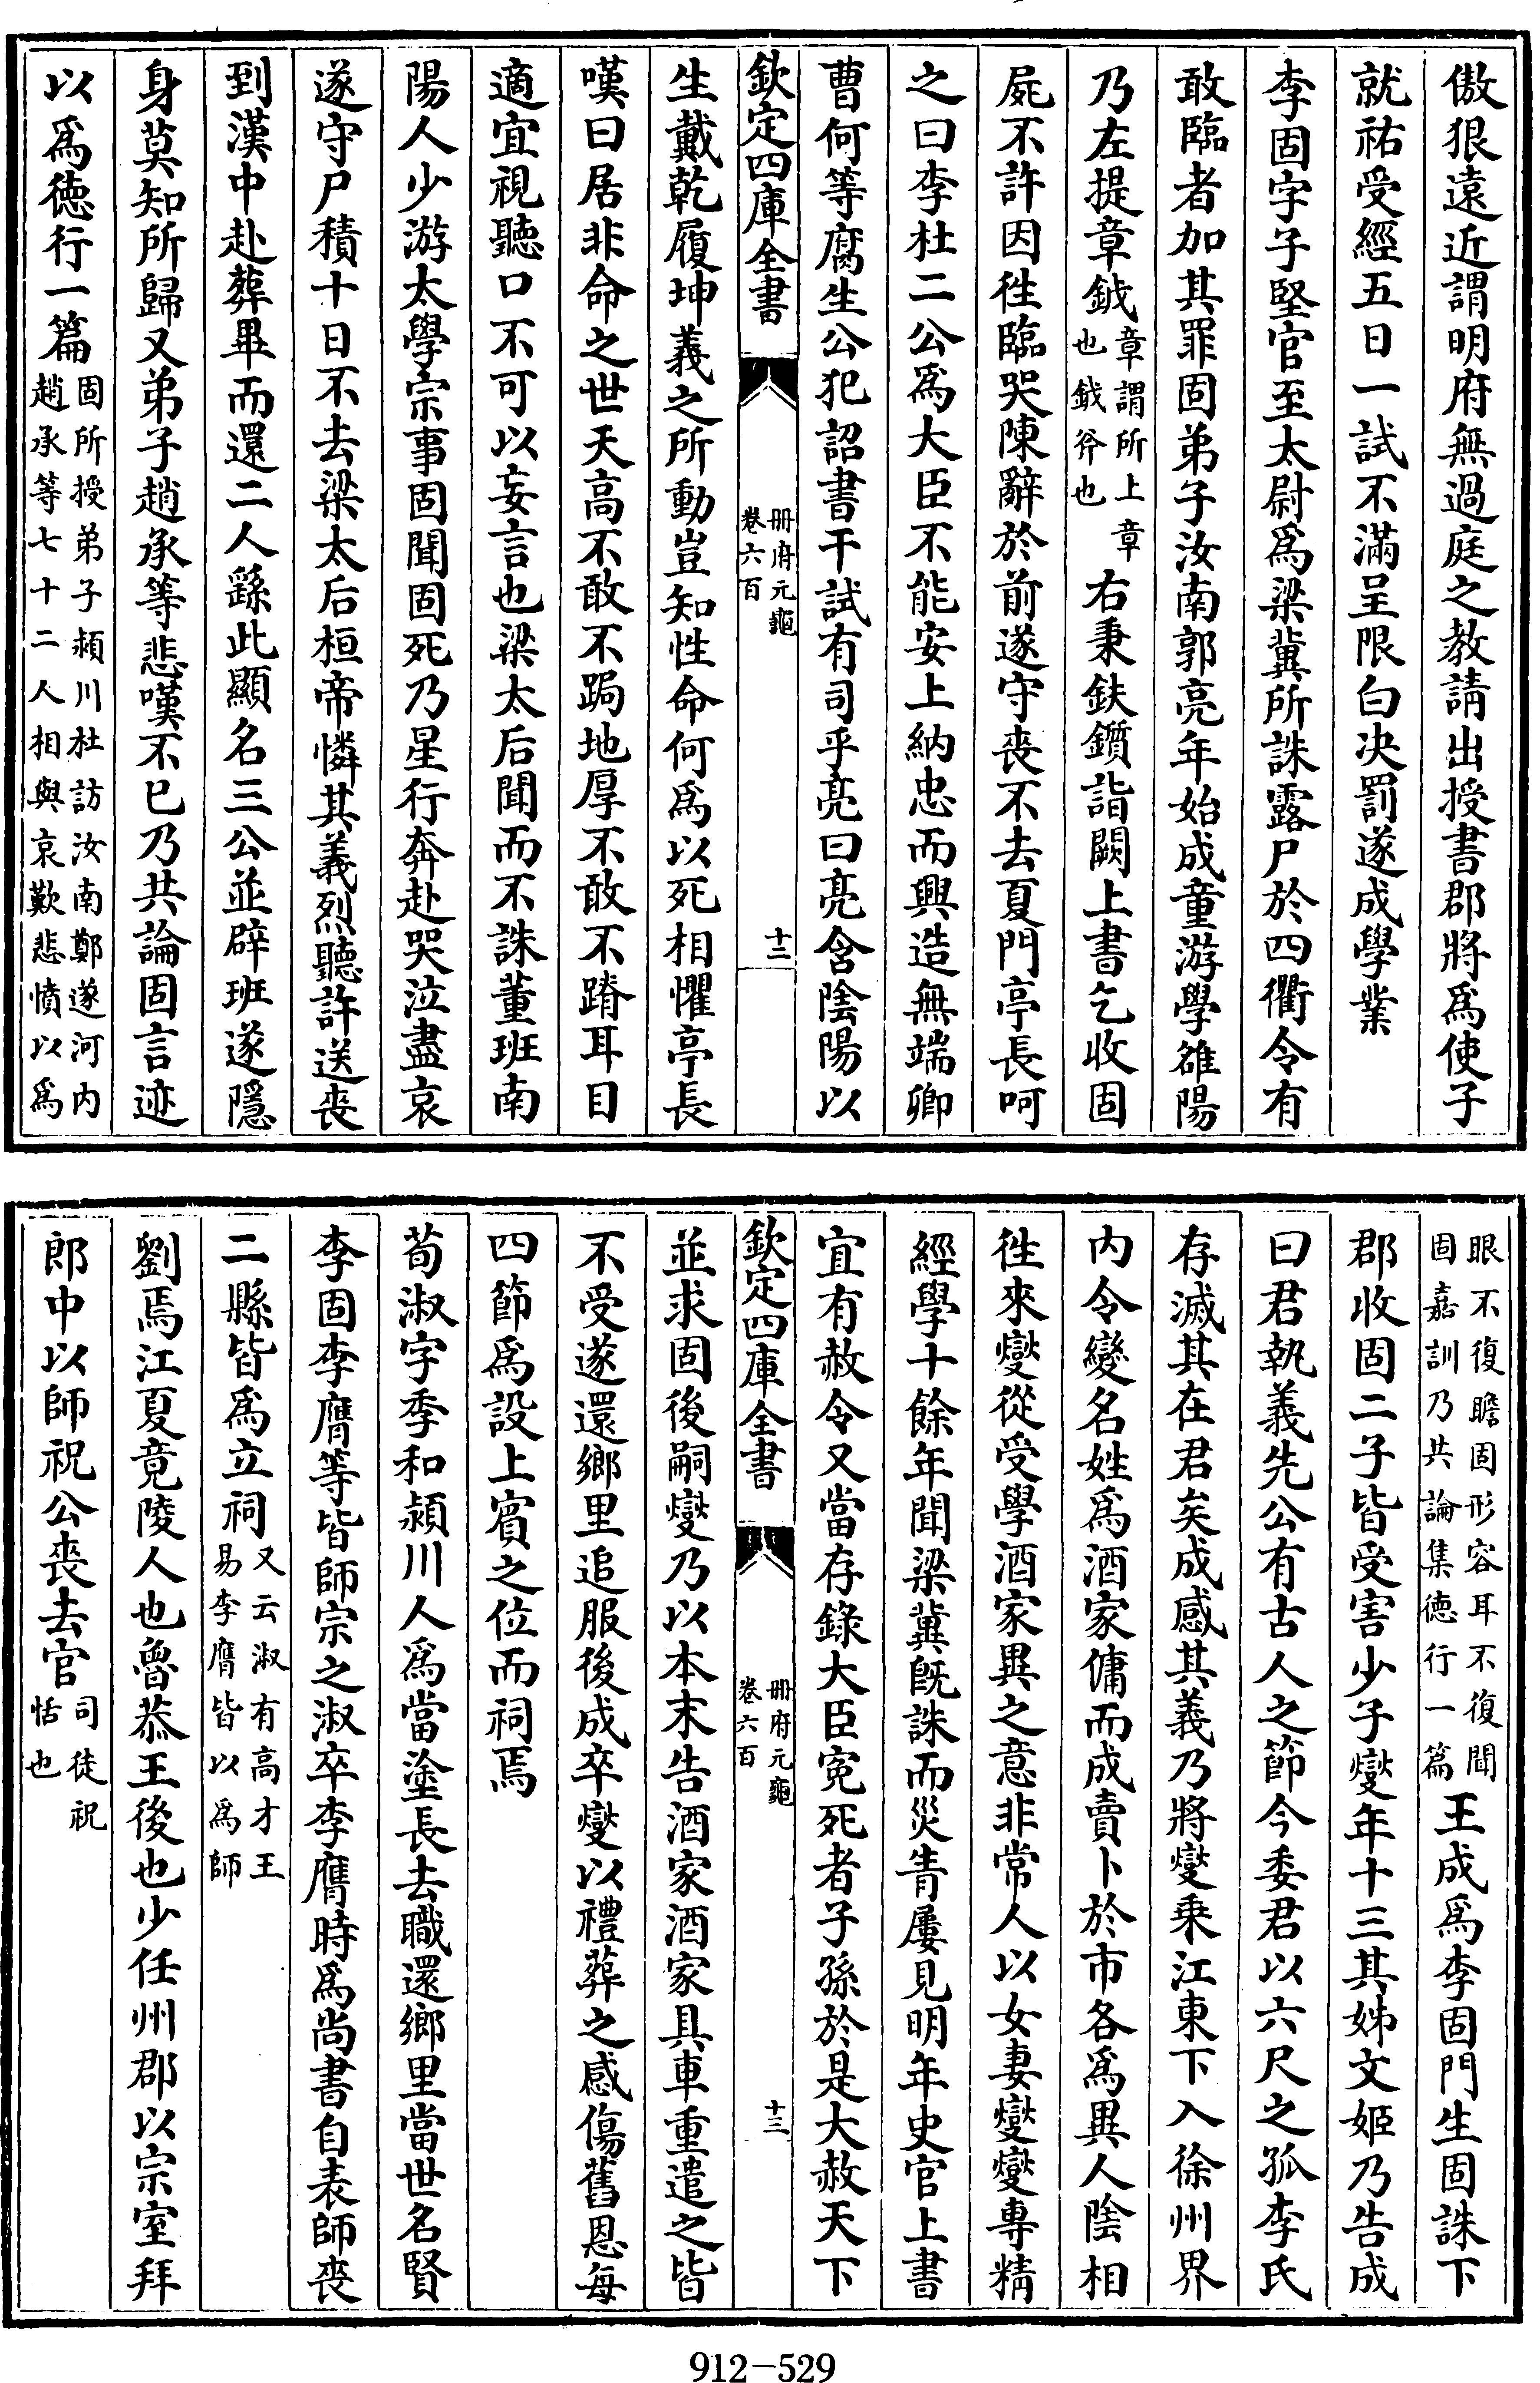 傲狠遠近謂明府無過庭之教請出授書郡將爲使子
就祐受經五日一試不滿呈限白决罰遂成學業
李固字子堅官至太尉爲梁冀所誅露尸於四衢令有
敢臨者加其罪固弟子汝南郭亮年始成童游學雒陽
乃左提章鉞章謂所上章也鉞斧也右秉鈇鑕詣闕上書乞收固
屍不許因徃臨哭陳辭於前遂守喪不去夏門亭長呵
之曰李杜二公爲大臣不能安上納忠而興造無端卿
曹何等腐生公犯詔書干試有司乎亮曰亮含陰陽以
欽定四庫全書
冊府元龜
卷六百
十二
生戴乾履坤義之所動豈知性命何爲以死相懼亭長
嘆曰居非命之世天高不敢不跼地厚不敢不蹐耳目
適宜視聽口不可以妄言也梁太后聞而不誅董班南
陽人少游太學宗事固聞固死乃星行奔赴哭泣盡哀
遂守尸積十日不去梁太后桓帝憐其義烈聽許送喪
到漢中赴葬畢而還二人繇此顯名三公並辟班遂隱
身莫知所歸又弟子趙承等悲嘆不已乃共論固言迹
以爲徳行一篇固所授弟子潁川杜訪汝南鄭遂河内趙承等七十二人相與哀歎悲憤以爲
眼不復瞻固形容耳不復聞固嘉訓乃共論集徳行一篇王成爲李固門生固誅下
郡收固二子皆受害少子爕年十三其姊文姬乃告成
曰君執義先公有古人之節今委君以六尺之孤李氏
存滅其在君矣成感其義乃將爕乘江東下入徐州界
内令變名姓爲酒家傭而成賣卜於市各爲異人陰相
徃來爕從受學酒家異之意非常人以女妻爕爕專精
經學十餘年聞梁冀旣誅而災眚屢見明年史官上書
宜有赦令又當存錄大臣寃死者子孫於是大赦天下
欽定四庫全書
冊府元龜
卷六百
十三
並求固後嗣爕乃以本末告酒家酒家具車重遣之皆
不受遂還鄉里追服後成卒爕以禮葬之感傷舊恩每
四節爲設上賓之位而祠焉
荀淑字季和潁川人爲當塗長去職還鄉里當世名賢
李固李膺等皆師宗之淑卒李膺時爲尚書自表師喪
二縣皆爲立祠又云淑有高才王易李膺皆以爲師
劉焉江夏竟陵人也魯恭王後也少任州郡以宗室拜
郎中以師祝公喪去官司徒祝恬也
912-529